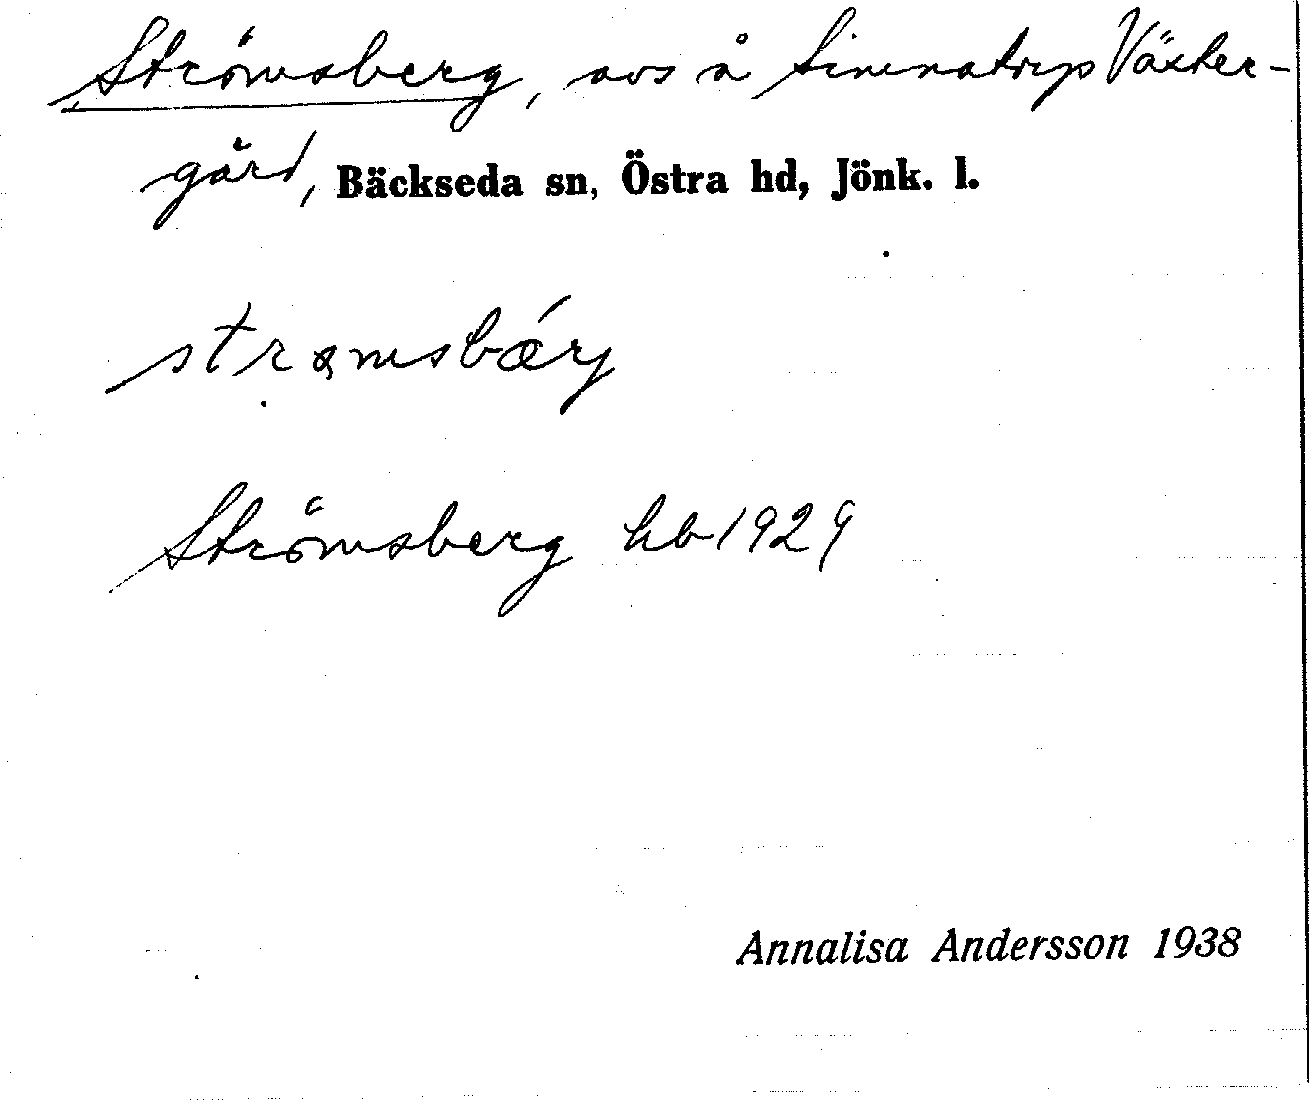 Strömsberg, avs å Simnatorp Väster-
gård, Bäckseda sn, Östra hd, Jönk. l.
strömsbärj
Strömsberg hb 1929
Annalisa Andersson 1938